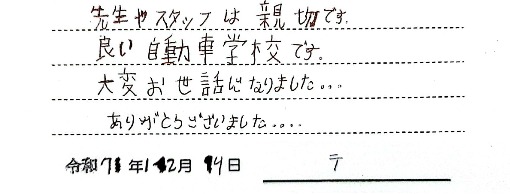 先生やスタッフは親切です.
良い自動車学校です.
大変お世話になりました...
ありがとうございました....
令和 年 月 日 テ